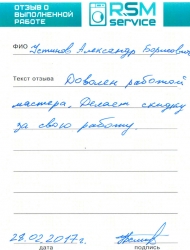 ОТЗЫВ О
ВЫПОЛНЕННОЙ
РАБОТЕ
RSM
service
ФИО Устинов Александр Борисович
Текст отзыва Доволен работой
мастера. Делает скидку
за свою работу.
28.02.2017г.
дата подпись